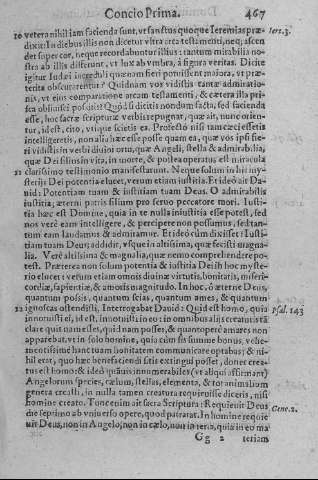 Concio Prima. 467
20 vetera nihil iam facienda sunt, vt sanctus quoque Ieremias præ- Iere.3.
dixit: In diebus illis non dicetur vltra arca testamenti, nec ascen
det super cor, neque recordabuntur illius: tantum mirabilia no-
stra ab illis differunt, vt lux ab vmbra, à figura veritas. Dicite
igitur Iudæi increduli quænam fieri potuissent maiora, vt præ-
terita obscurarentur? Quidnam vos vidistis tantæ admiratio-
nis, vt eius comparatione arcam testamenti, & cætera illa pri-
sca obliuisci possitis? Quòd si dicitis nondum facta, sed facienda
esse, hoc sacræ scripturæ verbis repugnat, quæ ait, nunc orien-
tur, id est, cito, vtique scietis ea. Profectò nisi tam cæci essetis
intelligeretis, non alia hæc esse posse quam ea, quæ vos ipsi fie-
ri vidistis in verbi diuini ortu, quæ Angeli, stella & admirabilia,
quæ Dei filius in vita, in morte, & postea operatus est miracula
21 clarissimo testimonio manifestarunt. Neque solum in hit my-
sterijs Dei potentia elucet, verum etiam iustitia. Et ideò ait Da-
uid: Potentiam tuam & iustitiam tuam Deus. O admirabilis
iustitia, æterni patris filium pro seruo peccatore mori. Iusti-
tia hæc est Domine, quia in te nulla iniustitia esse potest, sed
nos verè eam intelligere, & percipere non possumus, sed tan-
tum eam laudamus & admiramur. Et ideò cùm dixisset: Iusti-
tiam tuam Deus; addidit, vsque in altissima, quæ fecisti magna-
lia. Verè altissima & magnalia, quæ nemo comprehendere po-
test. Præterea non solum potentia & iustitia Dei in hoc myste-
rio elucet: verum etiam omnis diuina virtus, bonitatis, miseri-
cordiæ, sapientiæ, & amoris magnitudo. In hoc, ô æterne Deus,
quantum possis, quantum scias, quantum ames, & quantum
22 ignoscas ostendisti. Interrogabat Dauid: Quid est homo, quia Psal.143
innotuisti ei, id est, innotuisti in eo: in omnibus alijs creaturis tã
clarè quit nam esset, quid nam posses, & quantopere amares non
apparebat, vt in solo homine, quia cùm sis summe bonus, vehe-
mentissime hanc tuam bonitatem communicare optabas; & ni-
hil erat, quo hæc beneficiendi sitis extingui posset, donec crea-
tus est homo: & ideò quãuis innumerabiles (vt aliqui affirmant)
Angelorum species, cælum, stellas, elementa, & tot animalium
genera creasti, in nulla tamen creatura requieuisse diceris, nisi
homine creato. Tunc enim ait sacra Scriptura: Requieuit Deus
die septimo ab vniuerso opere, quod patrarat. In homine requie Gene.2.
uit Deus, non in Angelo, non in cælo, non in terra, quia in eo ma
Gg 2 teriam